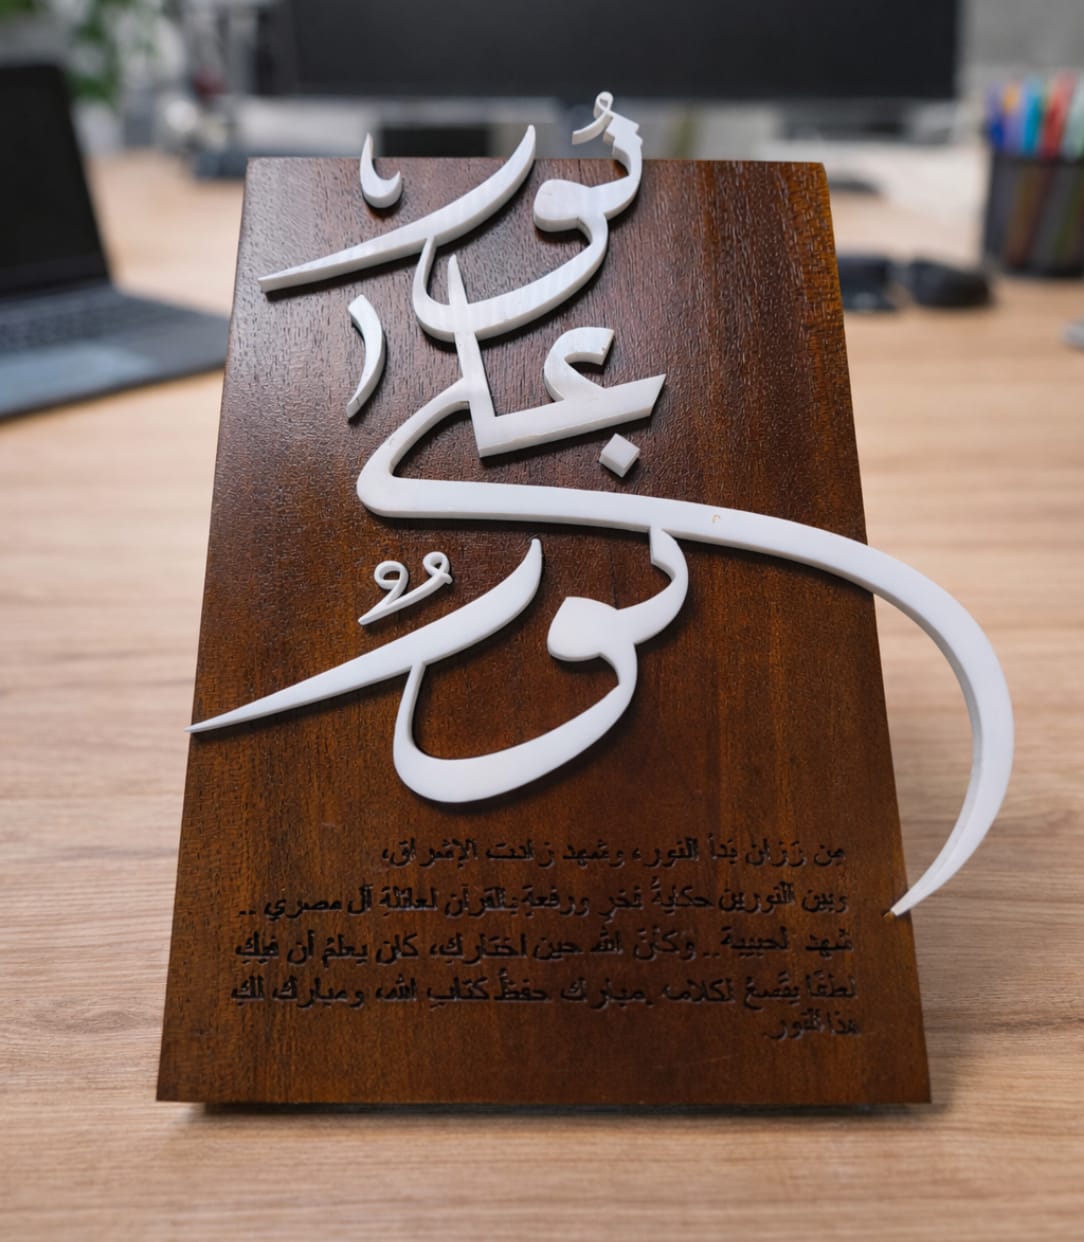 نور
على
نورٌ
من رَزان بَدأ النور، وشهد زادت الإشراق،
وبين النورين حكايةُ فخرٍ ورفعةٍ بالقرآن لعائلةِ آل مصري ..
شهد الحبيبة .. وكأنّ الله حين اختارك، كان يعلمُ أن فيكِ
لطفًا يتّسعُ لكلامه .مبارك حفظُ كتابِ الله، ومبارك لكِ
هذا النور.